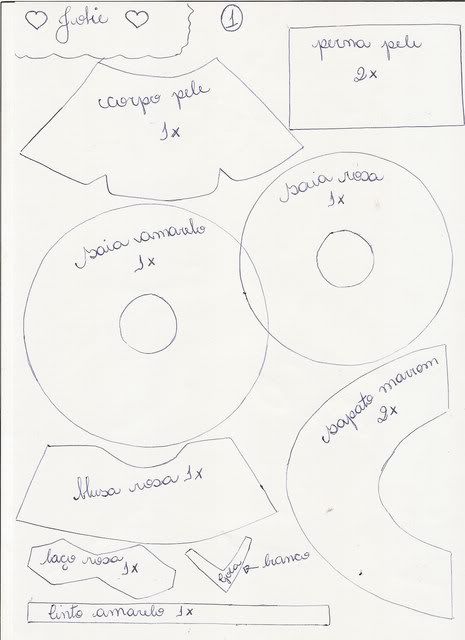 ♡ Jolie ♡
1
perna pele
2x
corpo pele
1x
saia rosa
1x
saia amarelo
1x
sapato marrom
2x
blusa rosa 1x
laço rosa
1x
gola
branco
cinto amarelo 1x